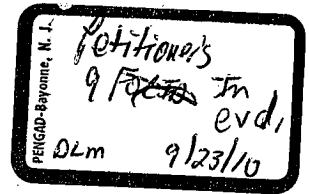 PENGAD-Bayonne, N. J.
Petitioner's
9 In
evd,
DLM 9/23/10